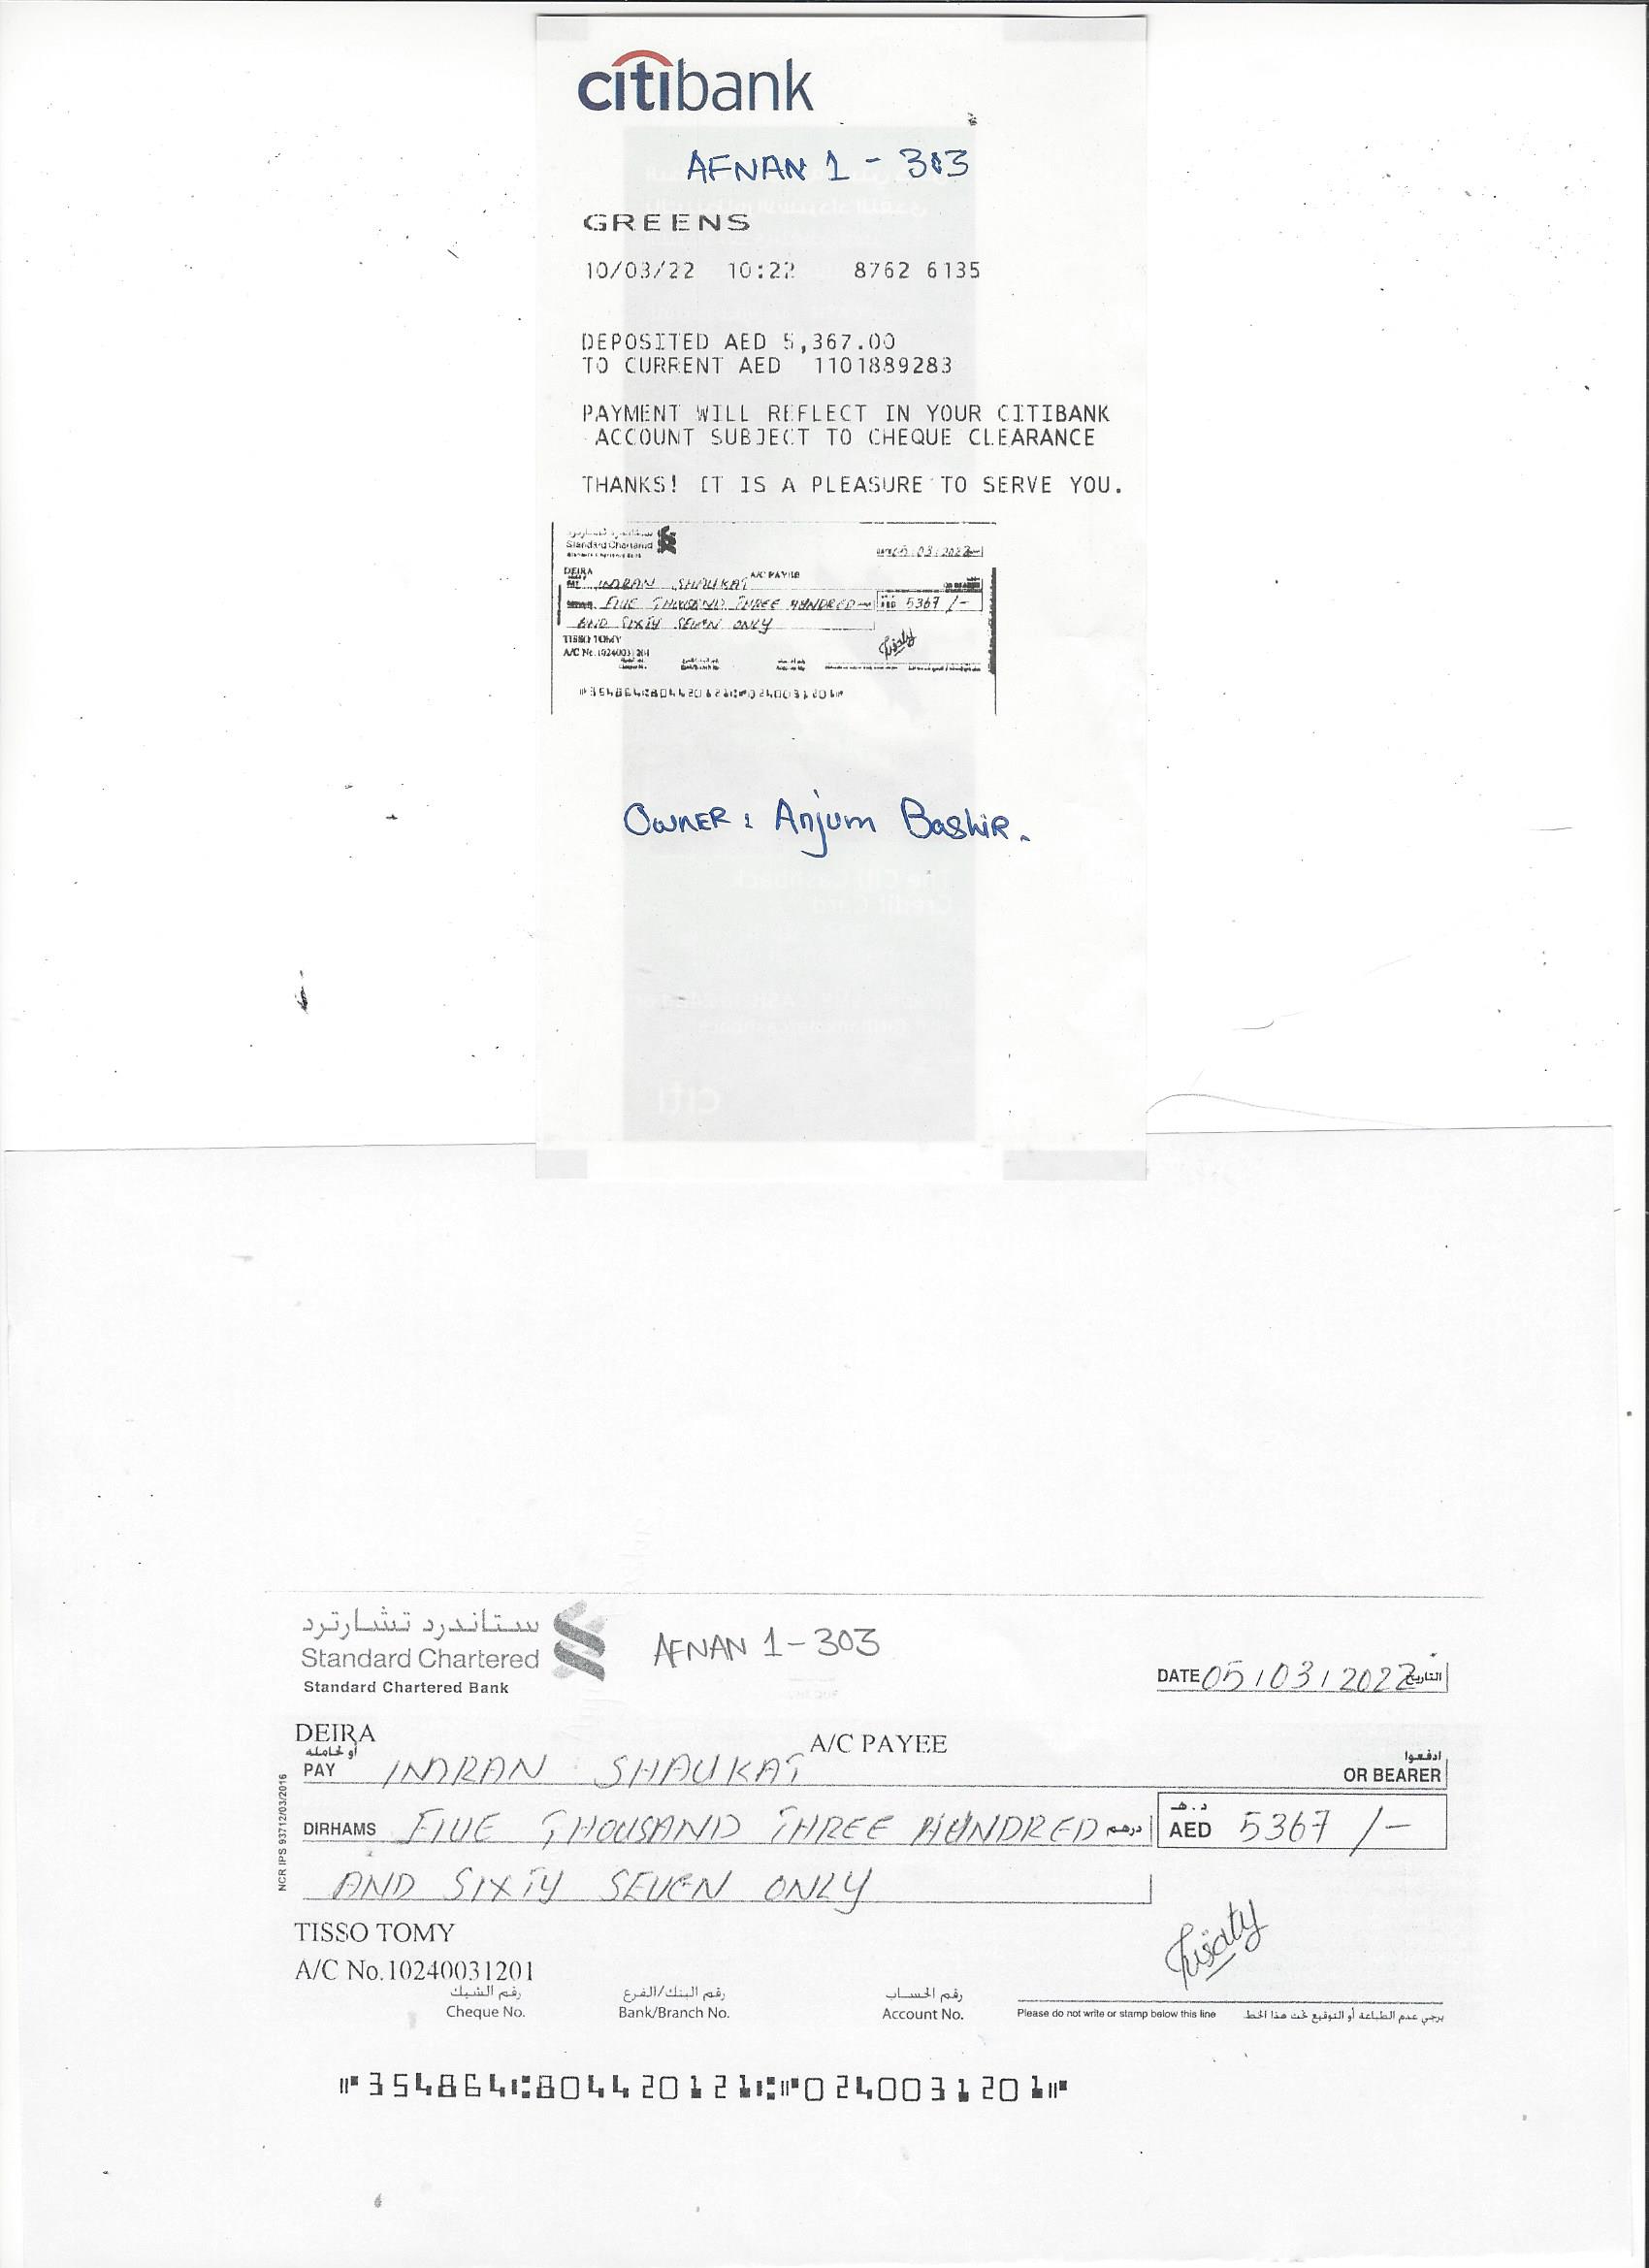 citibank
AFNAN 1 - 303
GREENS
10/03/22 10:22 8762 6135
DEPOSITED AED 5,367.00
TO CURRENT AED 1101889283
PAYMENT WILL REFLECT IN YOUR CITIBANK
ACCOUNT SUBJECT TO CHEQUE CLEARANCE
THANKS! IT IS A PLEASURE TO SERVE YOU.
ستاندرد تشارترد
Standard Chartered
DEIRA
A/C PAYEE
PAY IMRAN SHAUKAT
FIVE THOUSAND THREE HUNDRED 5367 /-
AND SIXTY SEVEN ONLY
TISSO TOMY
A/C No.10240031201
OWNER : Anjum Bashir.
citi
ستاندرد تشارترد
Standard Chartered
Standard Chartered Bank
AFNAN 1 - 303
DATE 05/03/2022 التاريخ
DEIRA
A/C PAYEE
أو لحامله ادفعوا
PAY IMRAN SHAUKAT OR BEARER
DIRHAMS FIVE THOUSAND THREE HUNDRED درهم د.هـ AED 5367 /-
AND SIXTY SEVEN ONLY
NCR IPS 93712/03/2016
TISSO TOMY
A/C No.10240031201
رقم الشيك رقم البنك/الفرع رقم الحساب
Cheque No. Bank/Branch No. Account No. Please do not write or stamp below this line يرجي عدم الطباعة أو التوقيع تحت هذا الخط
⑈354864⑆804420121⑆⑈0240031201⑈